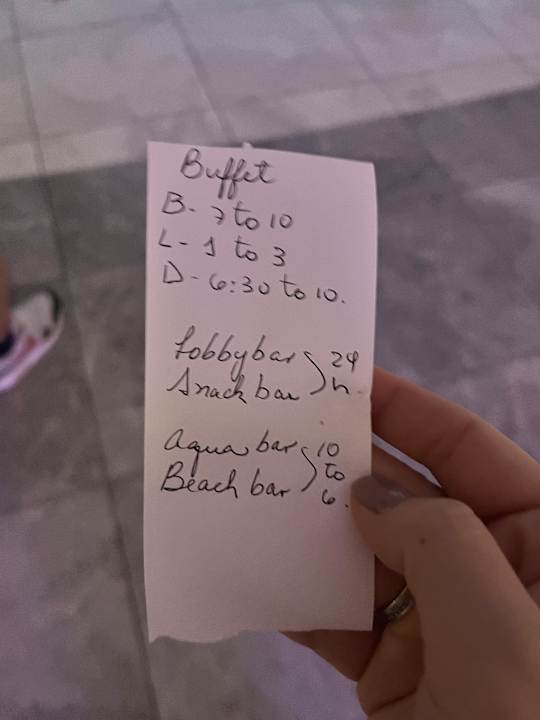 Buffet
B- 7 to 10
L- 1 to 3
D- 6:30 to 10.
Lobbybar } 24
Snack bar } h
Aqua bar } 10
to
Beach bar } 6.